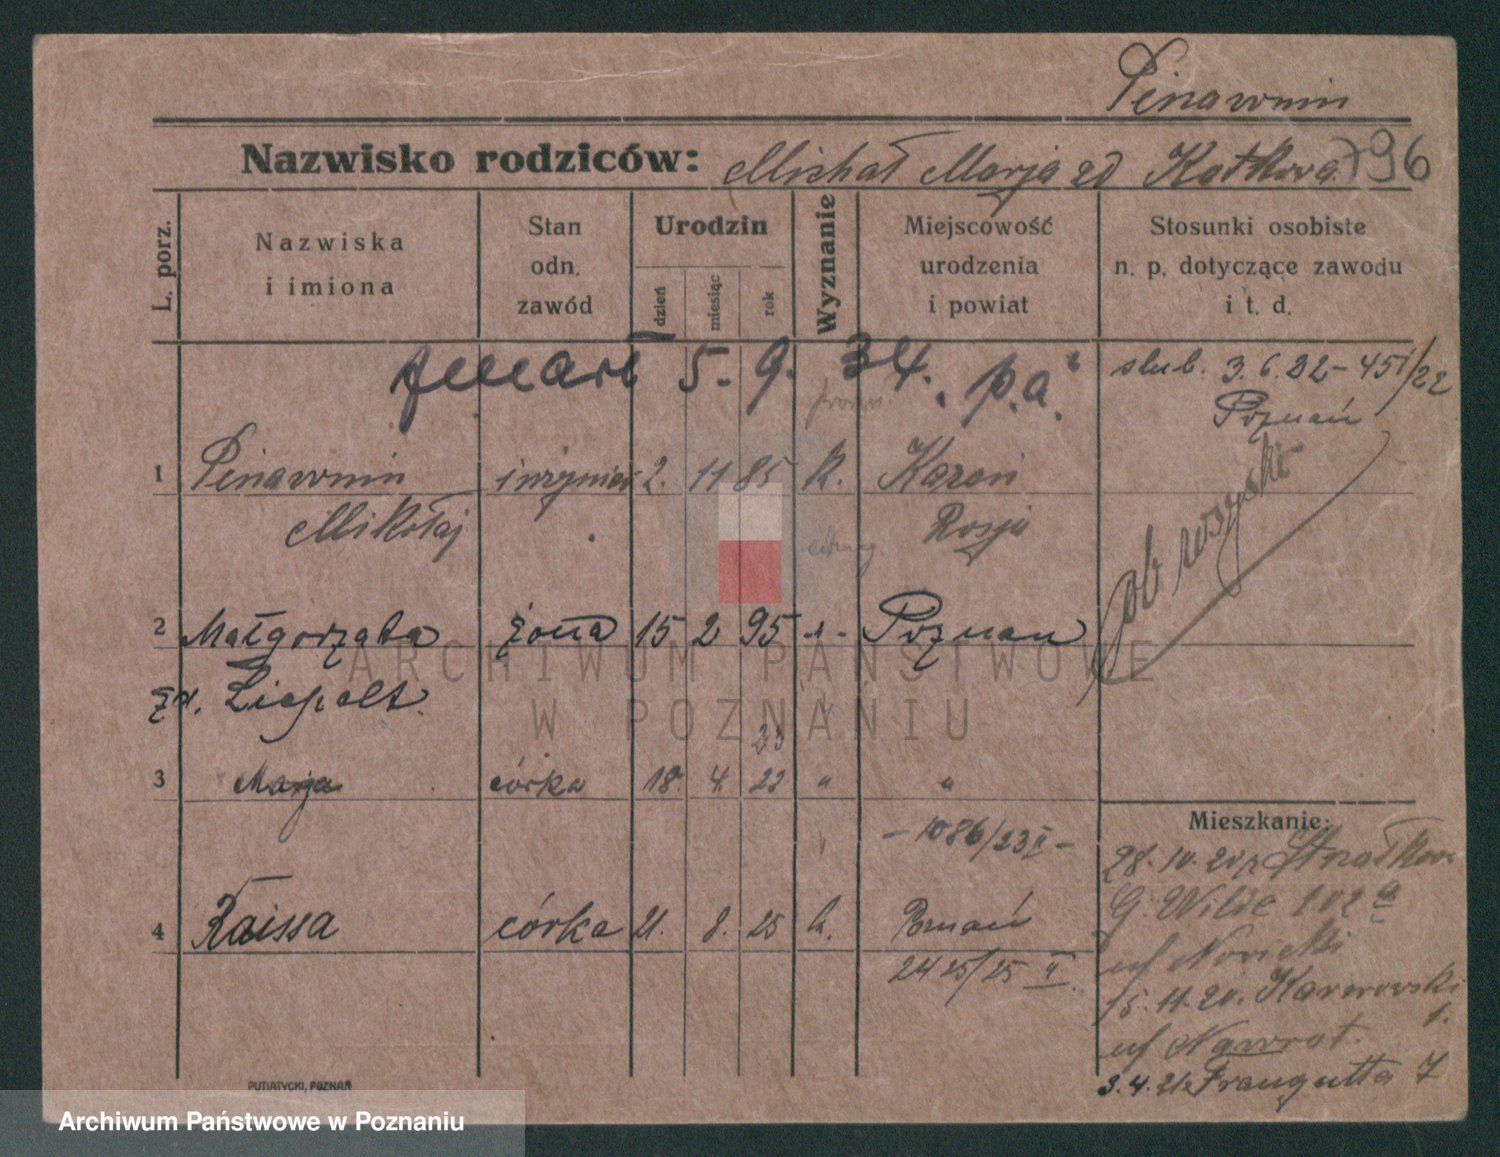 Pinawnin
Nazwisko rodziców: Michał Marja zd Katkova 796
L. porz.
Nazwiska i imiona
Stan odn. zawód
Urodzin
dzień miesiąc rok
Wyznanie
Miejscowość urodzenia i powiat
Stosunki osobiste n. p. dotyczące zawodu i t. d.
zmarł 5. 9. 34. p.a.
ślub. 3.6.22 - 451/22
Poznań
1 Pinawnin inżynier 2. 11 85 k. Kazań
Mikołaj Rosja
ob rosyjski
2 Małgorzata żona 15 2 95 Poznań
zd. Liepelt
23
3 Marja córka 18. 4. 22 " "
- 1086/23 II -
4 Raissa córka 21. 8. 25 k. Poznań
2425/25 II
Mieszkanie:
28. 10. 20
G. Wilde 102 a
uf Nowicki
15. 11. 20. Karwowski 1.
uf Nawrot.
3. 4. 21 Traugutta 7
PUTIATYCKI, POZNAŃ
ARCHIWUM PAŃSTWOWE
W POZNANIU
Archiwum Państwowe w Poznaniu